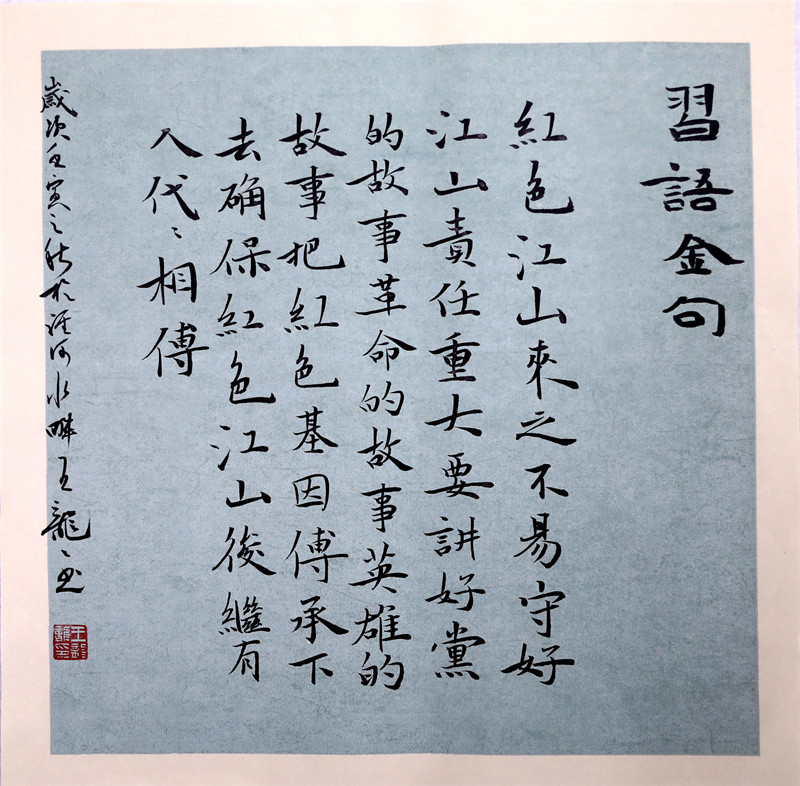 習語金句
紅色江山來之不易守好
江山責任重大要讲好黨
的故事革命的故事英雄的
故事把紅色基因傅承下
去确保紅色江山後繼有
人代〻相傅
歲次壬寅之秋於泾河水畔王龍〻書